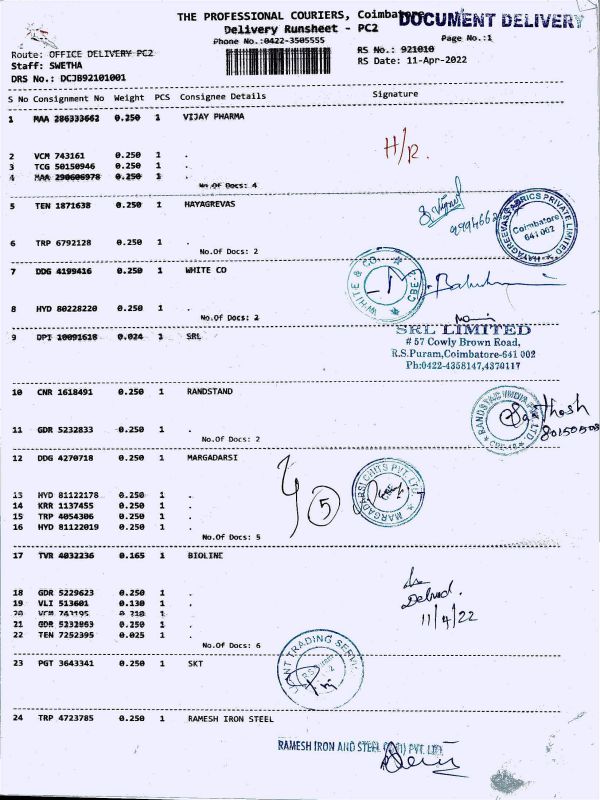 THE PROFESSIONAL COURIERS, Coimbatore
DOCUMENT DELIVERY
Delivery Runsheet - PC2
Phone No.:0422-3505555
Page No.:1
Route: OFFICE DELIVERY PC2
RS No.: 921010
Staff: SWETHA
RS Date: 11-Apr-2022
DRS No.: DCJB92101001
S No Consignment No Weight PCS Consignee Details Signature
1 MAA 286333662 0.250 1 VIJAY PHARMA
H/R.
2 VCM 743161 0.250 1 .
3 TCG 50150946 0.250 1 .
4 MAA 290606978 0.250 1 .
No.Of Docs: 4
5 TEN 1871638 0.250 1 HAYAGREVAS
HAYAGREEVAS FABRICS PRIVATE LIMITED
Coimbatore
641 002
6 TRP 6792128 0.250 1 .
No.Of Docs: 2
7 DDG 4199416 0.250 1 WHITE CO
WHITE & CO CBE-1
8 HYD 80228220 0.250 1 .
No.Of Docs: 2
9 DPI 10091618 0.024 1 SRL
SRL LIMITED
# 57 Cowly Brown Road,
R.S.Puram,Coimbatore-641 002
Ph:0422-4358147,4370117
10 CNR 1618491 0.250 1 RANDSTAND
RANDSTAD INDIA PVT LTD
Santhosh
11 GDR 5232833 0.250 1 .
No.Of Docs: 2
12 DDG 4270718 0.250 1 MARGADARSI
MARGADARSI CHITS PVT. LTD.
5
13 HYD 81122178 0.250 1 .
14 KRR 1137455 0.250 1 .
15 TRP 4054306 0.250 1 .
16 HYD 81122019 0.250 1 .
No.Of Docs: 5
17 TVR 4032236 0.165 1 BIOLINE
11/4/22
18 GDR 5229623 0.250 1 .
19 VLI 513601 0.130 1 .
20 VCM 743195 0.210 1 .
21 GDR 5232863 0.250 1 .
22 TEN 7252395 0.025 1 .
No.Of Docs: 6
23 PGT 3643341 0.250 1 SKT
TRADING
24 TRP 4723785 0.250 1 RAMESH IRON STEEL
RAMESH IRON AND STEEL PVT. LTD.